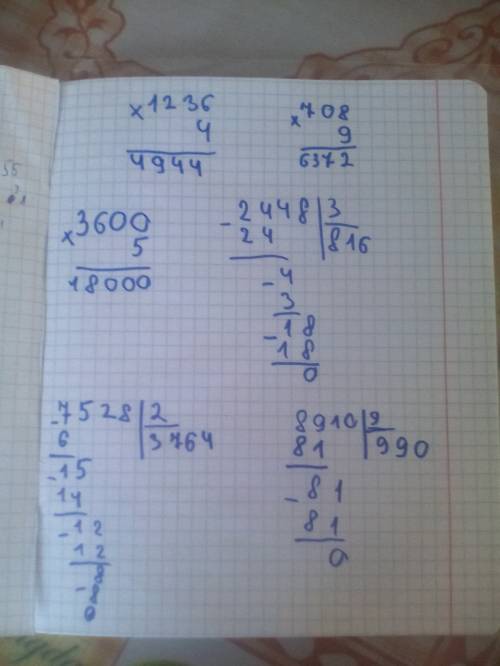 ×1236 ×708
4 9
4944 6372
×3600 -2448 3
5 24 816
18000 -4
3
-18
18
0
-7528 2 8910 9
6 3764 81 990
-15 -81
14 81
-12 0
12
-
0